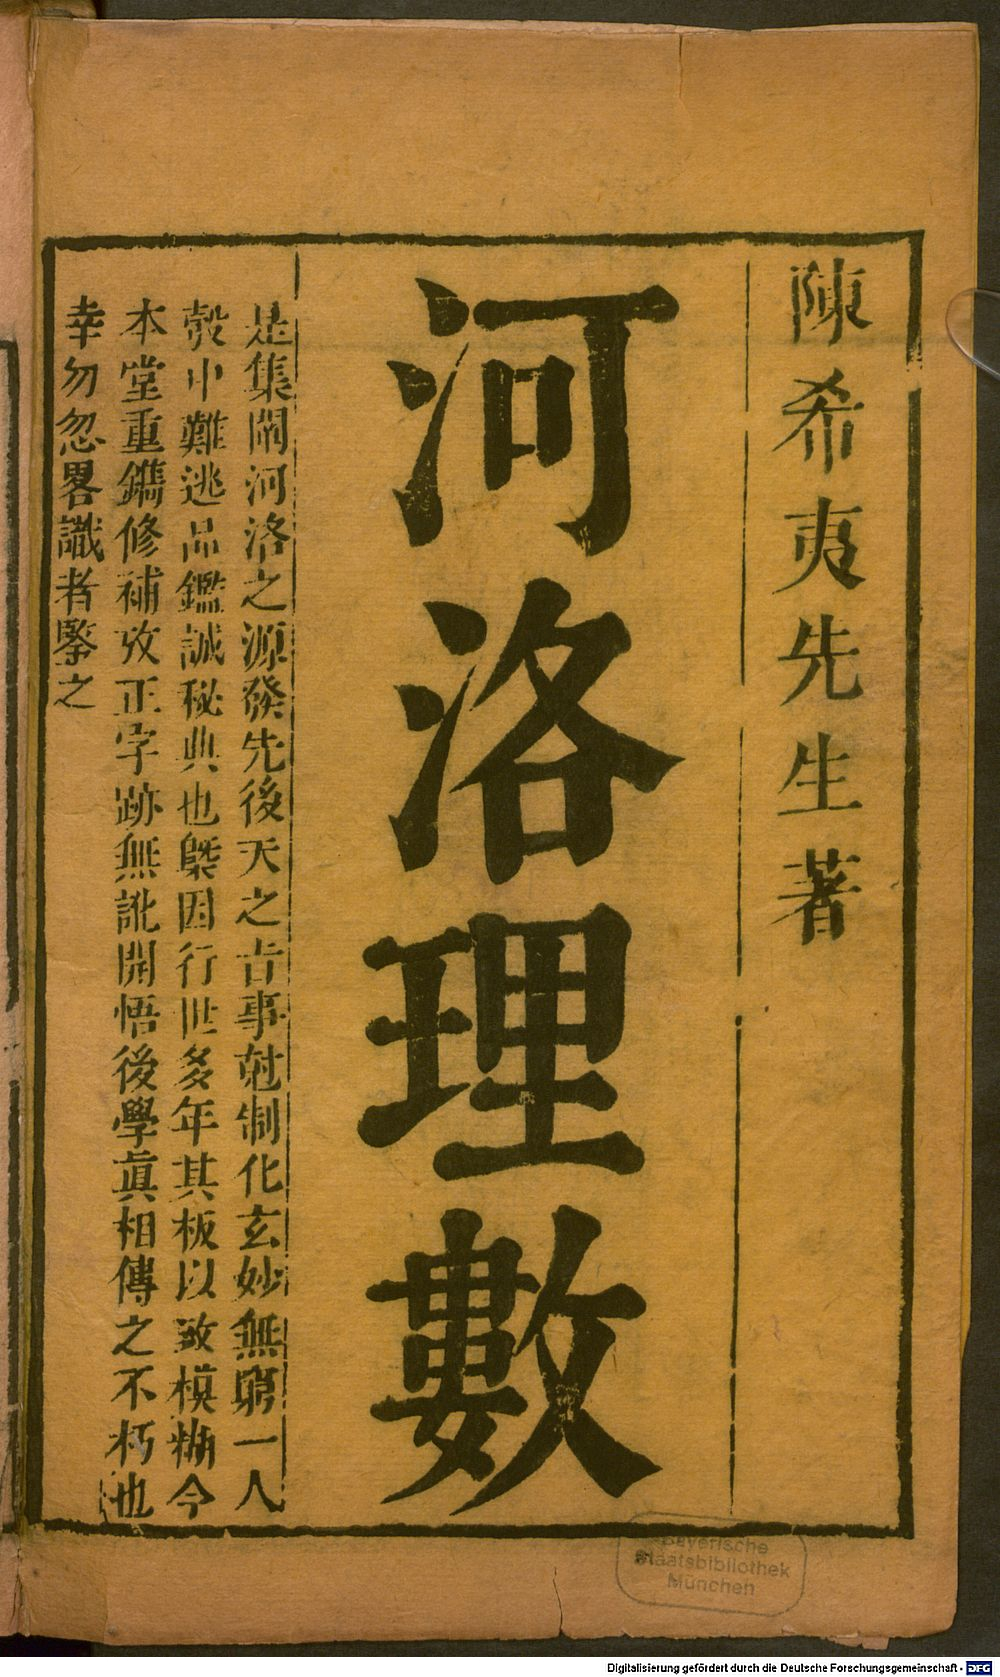 陳希夷先生著
河洛理數
是集闡河洛之源發先後天之旨事尅制化玄妙無窮一入
彀中難逃品鑑誠秘典也槩因行世多年其板以致模糊今
本堂重鐫修補攷正字跡無訛開悟後學眞相傳之不朽也
幸勿忽畧識者鑒之
Bayerische
Staatsbibliothek
München
Digitalisierung gefördert durch die Deutsche Forschungsgemeinschaft - DFG